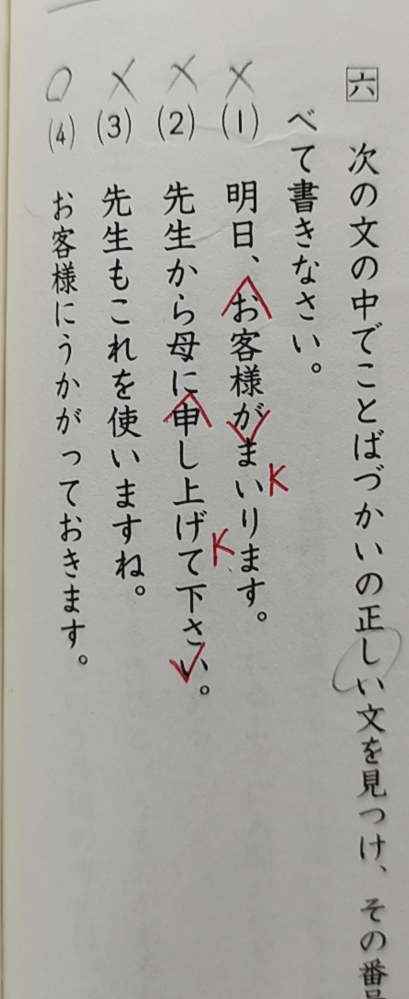 六 次の文の中でことばづかいの正しい文を見つけ、その番号
べて書きなさい。
× (1) 明日、お客様がまいります。
K
× (2) 先生から母に申し上げて下さい。
K
× (3) 先生もこれを使いますね。
○ (4) お客様にうかがっておきます。